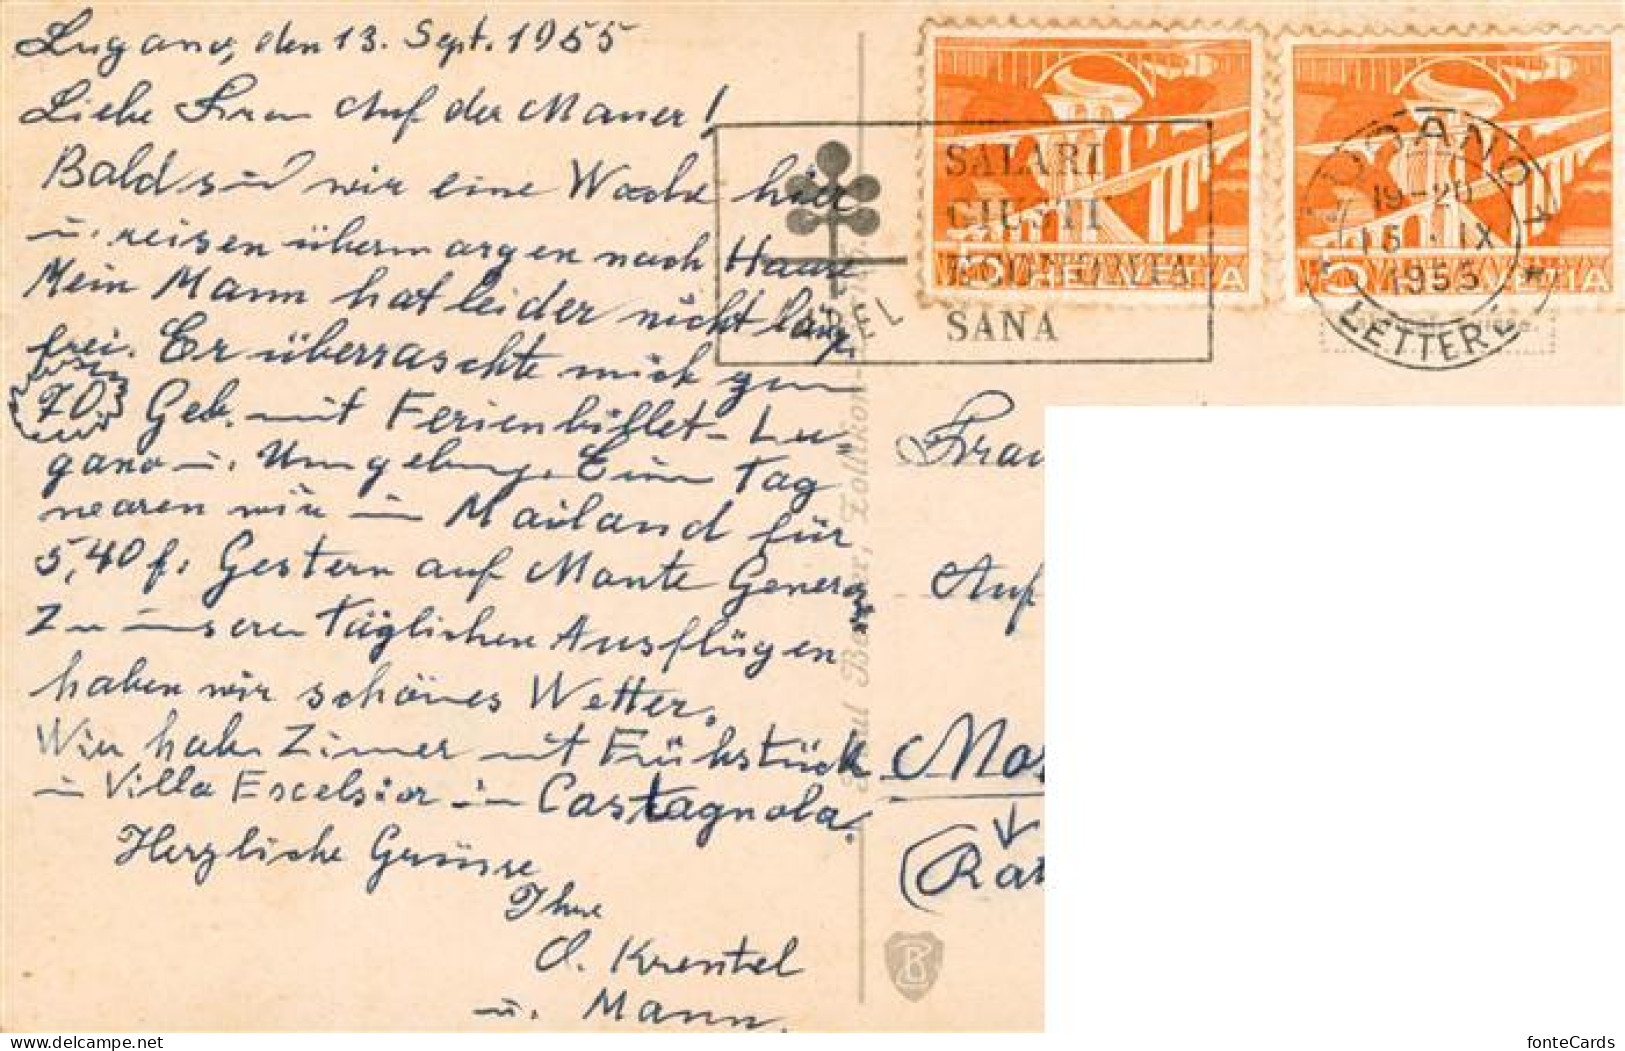 Lugano, den 13. Sept. 1955
Liebe Frau Auf der Mauer!
Bald sind wir eine Woche hier
u. reisen übermorgen nach Hause
Mein Mann hat leider nicht länger
frei. Er überraschte mich zum
70 Geb. mit Ferienbillet - Lu-
gano u. Umgebung. Eine Tag
waren wir in Mailand für
5,40 f. Gestern auf Monte Generoso
Zu unseren täglichen Ausflügen
haben wir schönes Wetter.
Wir habe Zimmer mit Frühstück
in Villa Excelsior in Castagnola.
Herzliche Grüsse
Ihre
O. Krentel
u. Mann.
SALARI
GIUSTI
ECONOMIA
SANA
LABEL
5 HELVETIA
5 HELVETIA
LUGANO 1
19-20
15. IX
1955
LETTERE
Zollikon-Zürich
Frau
Auf
Mo
(Rat
B
fonteCards